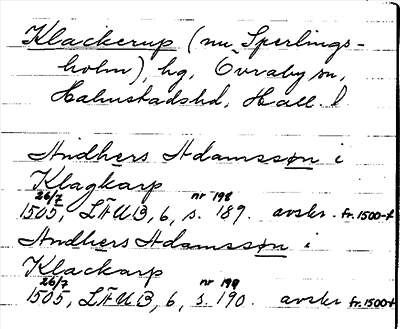 Klackerup (nu Sperlings-
holm), hg, Övraby sn,
Halmstadshd, Hall. l
Andhers Adamssøn i
Klagkarp
26/7 1505, LÄUB, 6, s. nr 198 189. avskr. fr. 1500-t
Andhers Adamssøn i
Klackarp
26/7 1505, LÄUB, 6, s. nr 199 190. avskr fr 1500-t